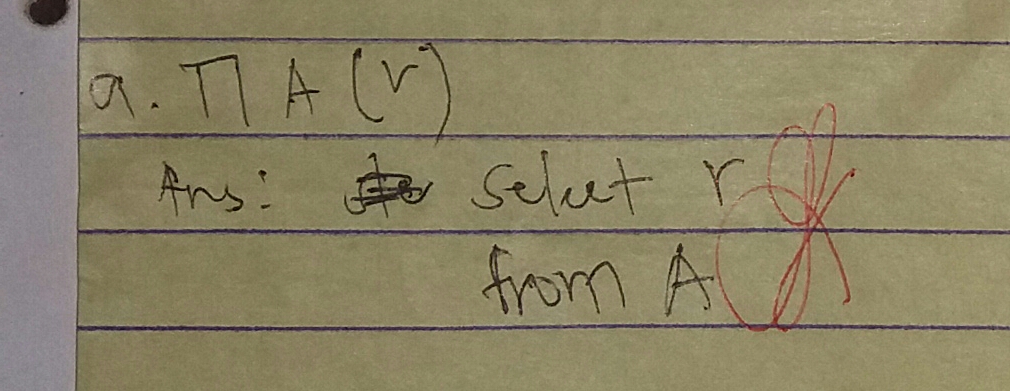 a. Π A (r)
Ans: select r
from A